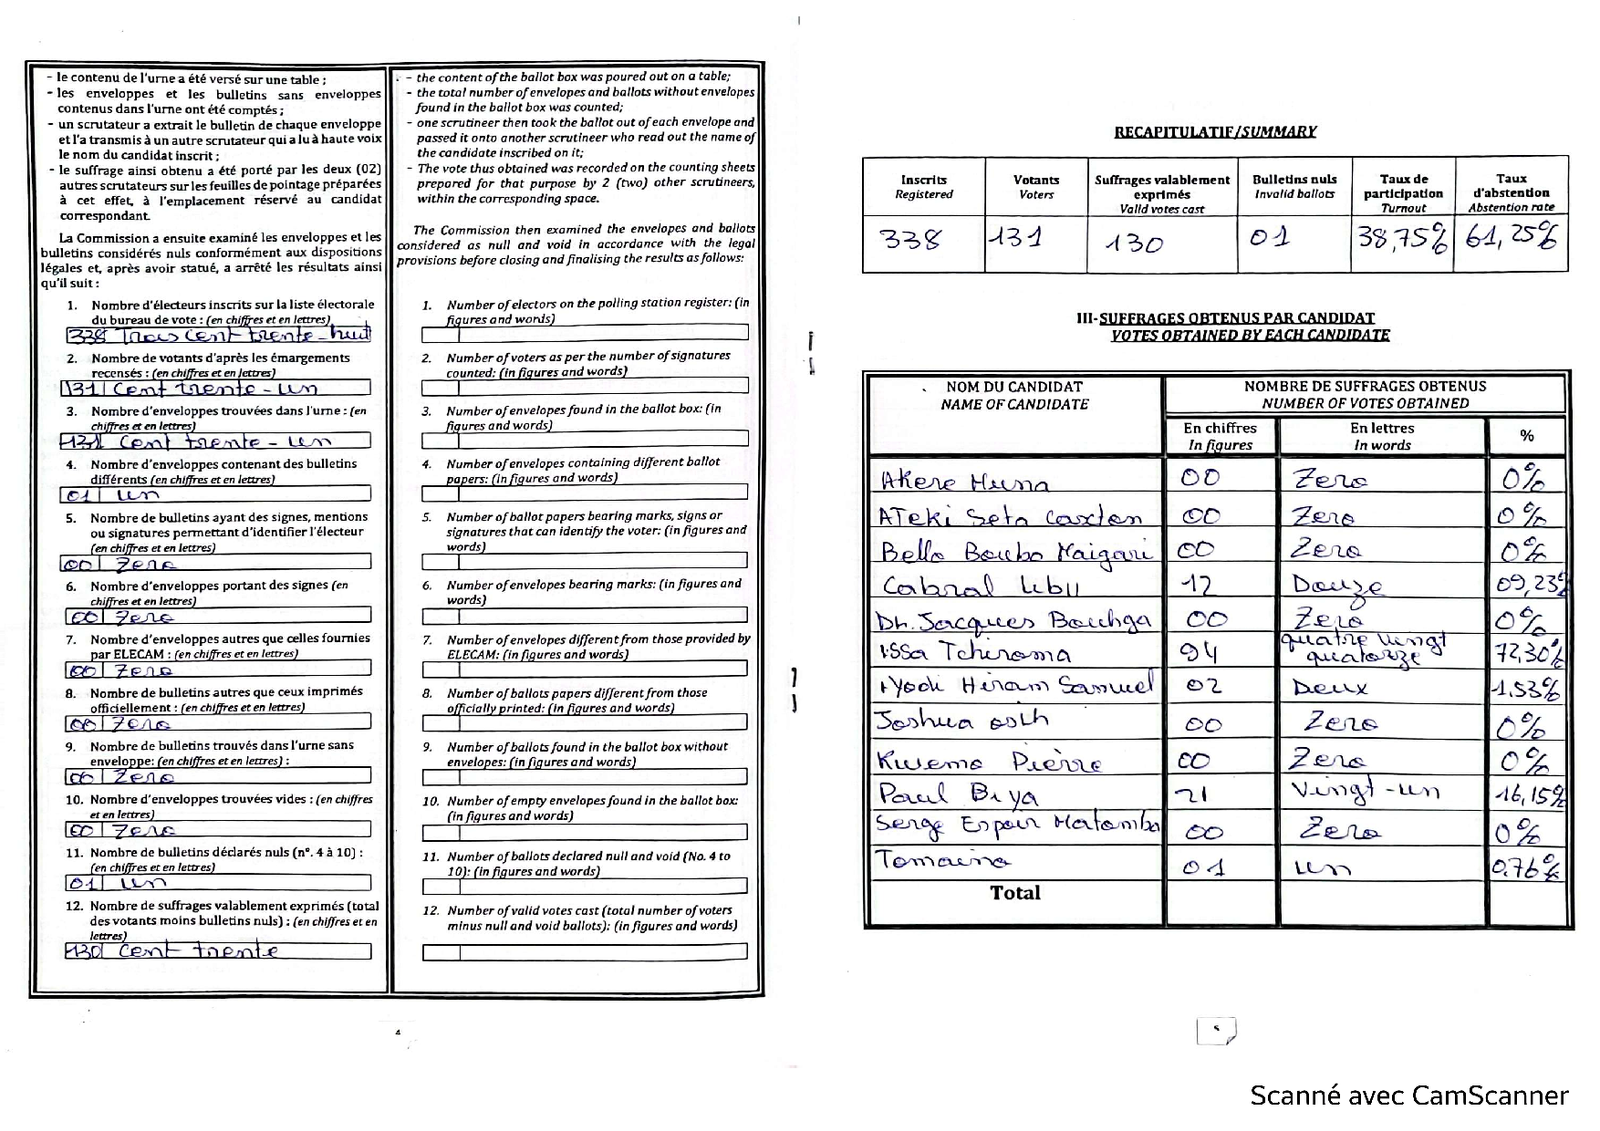 - le contenu de l'urne a été versé sur une table ;
- les enveloppes et les bulletins sans enveloppes
contenus dans l'urne ont été comptés ;
- un scrutateur a extrait le bulletin de chaque enveloppe
et l'a transmis à un autre scrutateur qui a lu à haute voix
le nom du candidat inscrit ;
- le suffrage ainsi obtenu a été porté par les deux (02)
autres scrutateurs sur les feuilles de pointage préparées
à cet effet, à l'emplacement réservé au candidat
correspondant.
La Commission a ensuite examiné les enveloppes et les
bulletins considérés nuls conformément aux dispositions
légales et, après avoir statué, a arrêté les résultats ainsi
qu'il suit :
1. Nombre d'électeurs inscrits sur la liste électorale
du bureau de vote : (en chiffres et en lettres)
338 Trois cent trente-huit
2. Nombre de votants d'après les émargements
recensés : (en chiffres et en lettres)
131 Cent trente-un
3. Nombre d'enveloppes trouvées dans l'urne : (en
chiffres et en lettres)
131 Cent trente-un
4. Nombre d'enveloppes contenant des bulletins
différents (en chiffres et en lettres)
01 un
5. Nombre de bulletins ayant des signes, mentions
ou signatures permettant d'identifier l'électeur
(en chiffres et en lettres)
00 Zero
6. Nombre d'enveloppes portant des signes (en
chiffres et en lettres)
00 Zero
7. Nombre d'enveloppes autres que celles fournies
par ELECAM : (en chiffres et en lettres)
00 Zero
8. Nombre de bulletins autres que ceux imprimés
officiellement : (en chiffres et en lettres)
00 Zero
9. Nombre de bulletins trouvés dans l'urne sans
enveloppe: (en chiffres et en lettres) :
00 Zero
10. Nombre d'enveloppes trouvées vides : (en chiffres
et en lettres)
00 Zero
11. Nombre de bulletins déclarés nuls (n°. 4 à 10) :
(en chiffres et en lettres)
01 un
12. Nombre de suffrages valablement exprimés (total
des votants moins bulletins nuls) : (en chiffres et en
lettres)
130 Cent trente
- the content of the ballot box was poured out on a table;
- the total number of envelopes and ballots without envelopes
found in the ballot box was counted;
- one scrutineer then took the ballot out of each envelope and
passed it onto another scrutineer who read out the name of
the candidate inscribed on it;
- The vote thus obtained was recorded on the counting sheets
prepared for that purpose by 2 (two) other scrutineers,
within the corresponding space.
The Commission then examined the envelopes and ballots
considered as null and void in accordance with the legal
provisions before closing and finalising the results as follows:
1. Number of electors on the polling station register: (in
figures and words)
2. Number of voters as per the number of signatures
counted: (in figures and words)
3. Number of envelopes found in the ballot box: (in
figures and words)
4. Number of envelopes containing different ballot
papers: (in figures and words)
5. Number of ballot papers bearing marks, signs or
signatures that can identify the voter: (in figures and
words)
6. Number of envelopes bearing marks: (in figures and
words)
7. Number of envelopes different from those provided by
ELECAM: (in figures and words)
8. Number of ballots papers different from those
officially printed: (in figures and words)
9. Number of ballots found in the ballot box without
envelopes: (in figures and words)
10. Number of empty envelopes found in the ballot box:
(in figures and words)
11. Number of ballots declared null and void (No. 4 to
10): (in figures and words)
12. Number of valid votes cast (total number of voters
minus null and void ballots): (in figures and words)
4
RECAPITULATIF/SUMMARY
Inscrits Votants Suffrages valablement Bulletins nuls Taux de Taux
Registered Voters exprimés Invalid ballots participation d'abstention
Valid votes cast Turnout Abstention rate
338 131 130 01 38,75% 61,25%
III-SUFFRAGES OBTENUS PAR CANDIDAT
VOTES OBTAINED BY EACH CANDIDATE
NOM DU CANDIDAT NOMBRE DE SUFFRAGES OBTENUS
NAME OF CANDIDATE NUMBER OF VOTES OBTAINED
En chiffres En lettres %
In figures In words
Akere Muna 00 Zero 0%
ATeki Seta Caxton 00 Zero 0%
Bello Bouba Maigari 00 Zero 0%
Cabral Libii 12 Douze 09,23%
Dr. Jacques Bouhga 00 Zero 0%
Issa Tchiroma 94 quatre vingt quatorze 72,30%
Iyodi Hiram Samuel 02 Deux 1,53%
Joshua osih 00 Zero 0%
Kwemo Pierre 00 Zero 0%
Paul Biya 21 Vingt-un 16,15%
Serge Espoir Matomba 00 Zero 0%
Tomaino 01 un 0,76%
Total
5
Scanné avec CamScanner